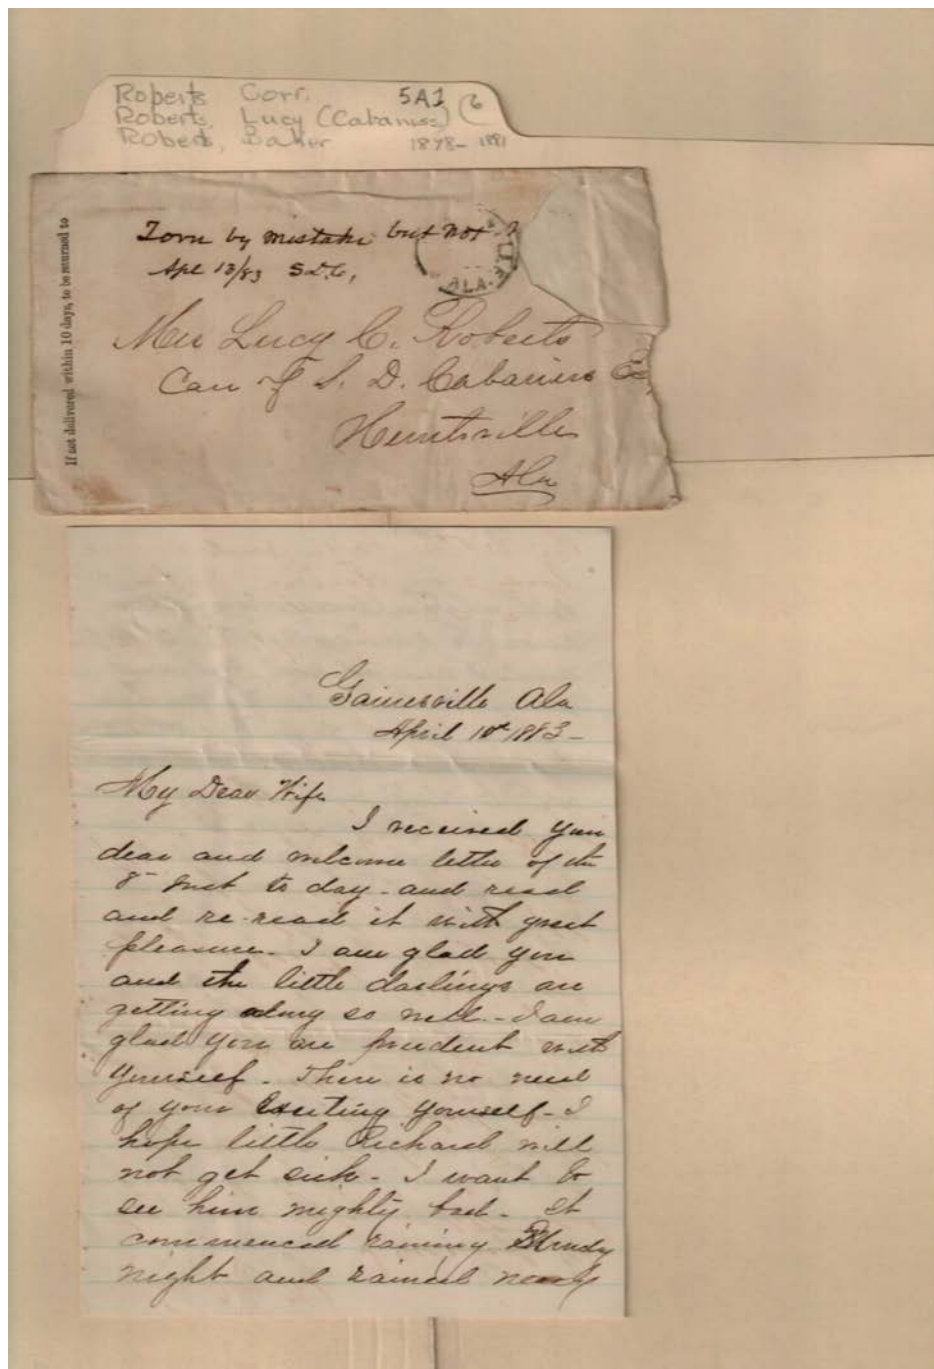 Roberts Corr. 5A1 6
Roberts, Lucy (Cabaniss)
Roberts, Baker 1878-1881
If not delivered within 10 days, to be returned to
Torn by mistake but not
Apl 13/83 S.D.C,
ALA.
Mrs Lucy C. Roberts
Care of S. D. Cabaniss
Huntsville
Ala
Gainesville Ala
April 10th 1883-
My Dear Wife
I received your
dear and welcome letter of the
8th inst to day - and read
and re-read it with great
pleasure - I am glad you
and the little darlings are
getting along so well - I am
glad you are prudent with
yourself - There is no need
of your Exerting yourself - I
hope little Richard will
not get sick - I want to
see him mighty bad - It
commenced raining
night and rained nearly